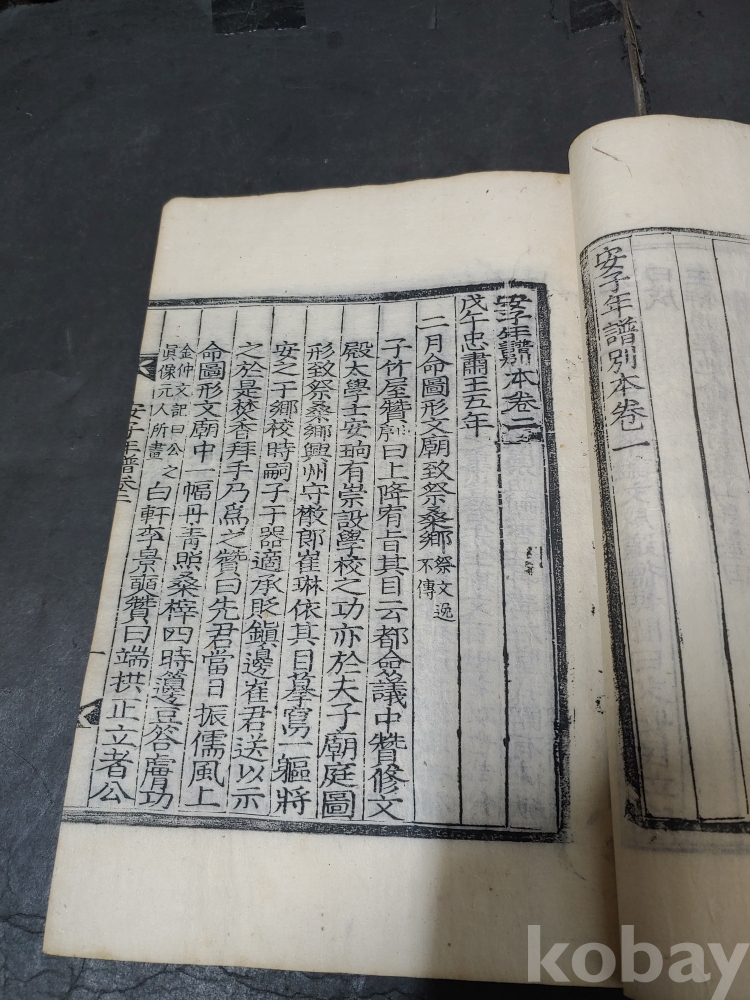 安子年譜別本卷一
安子年譜別本卷二
戊午忠肅王五年
二月命圖形文廟致祭桑鄉祭文逸不傳
子竹屋贊 曰上降宥旨其目云都僉議中贊修文
殿太學士安珦有崇設學校之功亦於夫子廟庭圖
形致祭桑鄉興州守 郞崔琳依其目摹寫一軀將
安之于鄉校時嗣子于器適承貶鎭邊崔君送以示
之於是焚香拜手乃爲之贊曰先君當日振儒風上
命圖形文廟中一幅丹靑照桑梓四時籩豆答膚功
金仲文記曰公之眞像元人所畫白軒李景奭贊曰端拱正立者公
安子年譜卷二
一
kobay